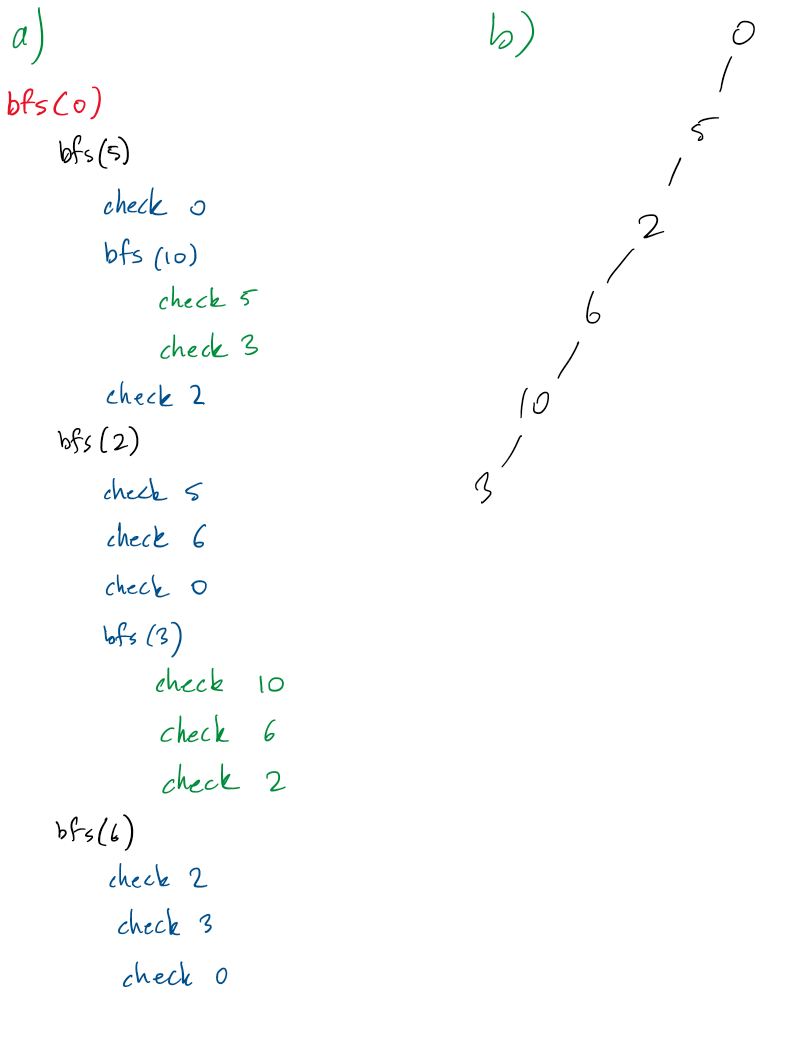 a)
bfs(0)
bfs(5)
check 0
bfs (10)
check 5
check 3
check 2
bfs(2)
check 5
check 6
check 0
bfs (3)
check 10
check 6
check 2
bfs(6)
check 2
check 3
check 0
b)
0
5
2
6
10
3